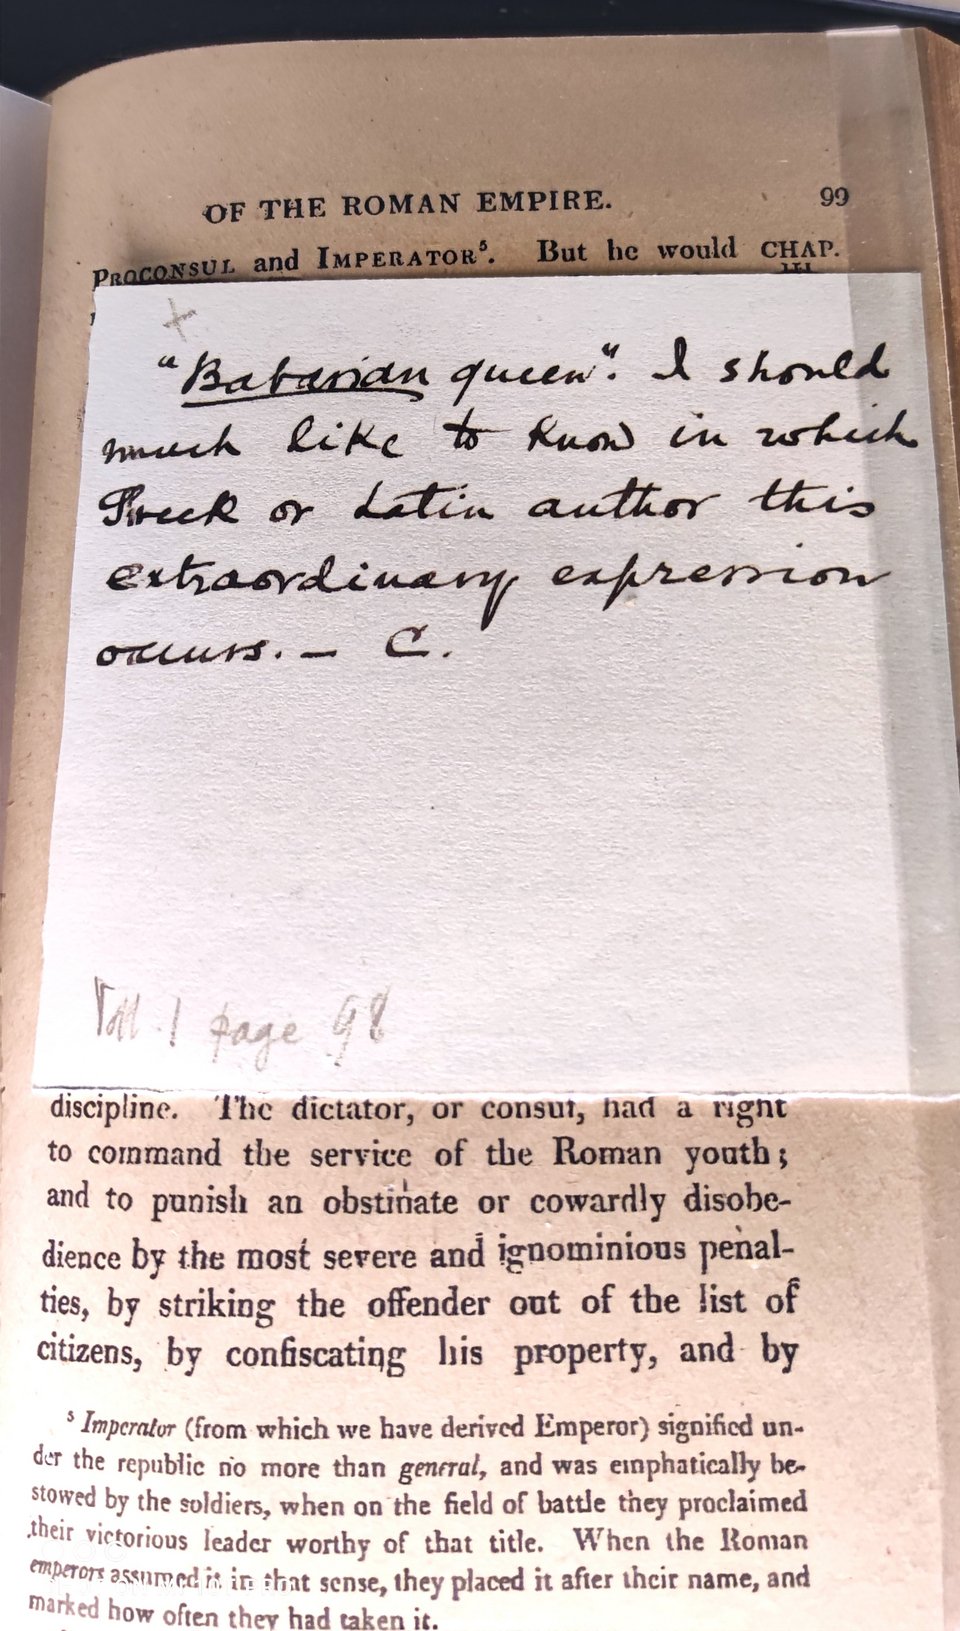 OF THE ROMAN EMPIRE. 99
PROCONSUL and IMPERATOR⁵. But he would CHAP.
III
"Babarian queen". I should
much like to know in which
Greek or Latin author this
extraordinary expression
occurs. — C.
Vol. I page 98
discipline. The dictator, or consul, had a right
to command the service of the Roman youth;
and to punish an obstinate or cowardly disobe-
dience by the most severe and ignominious penal-
ties, by striking the offender out of the list of
citizens, by confiscating his property, and by
⁵ Imperator (from which we have derived Emperor) signified un-
der the republic no more than general, and was emphatically be-
stowed by the soldiers, when on the field of battle they proclaimed
their victorious leader worthy of that title. When the Roman
emperors assumed it in that sense, they placed it after their name, and
marked how often they had taken it.